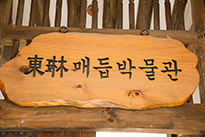 東琳매듭박물관